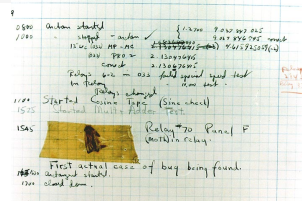 9
0800 Antan started
1000 " stopped - antan
13"uc (032) MP-MC
(033) PRO 2 2.130476415
correct 2.130676415
Relays 6-2 in 033 failed special speed test
in Relay
Relays changed
1100 Started Cosine Tape (Sine check)
1525 Started Multi+Adder Test
1545 Relay #70 Panel F
(moth) in relay.
First actual case of bug being found.
antangent started.
1700 closed down.